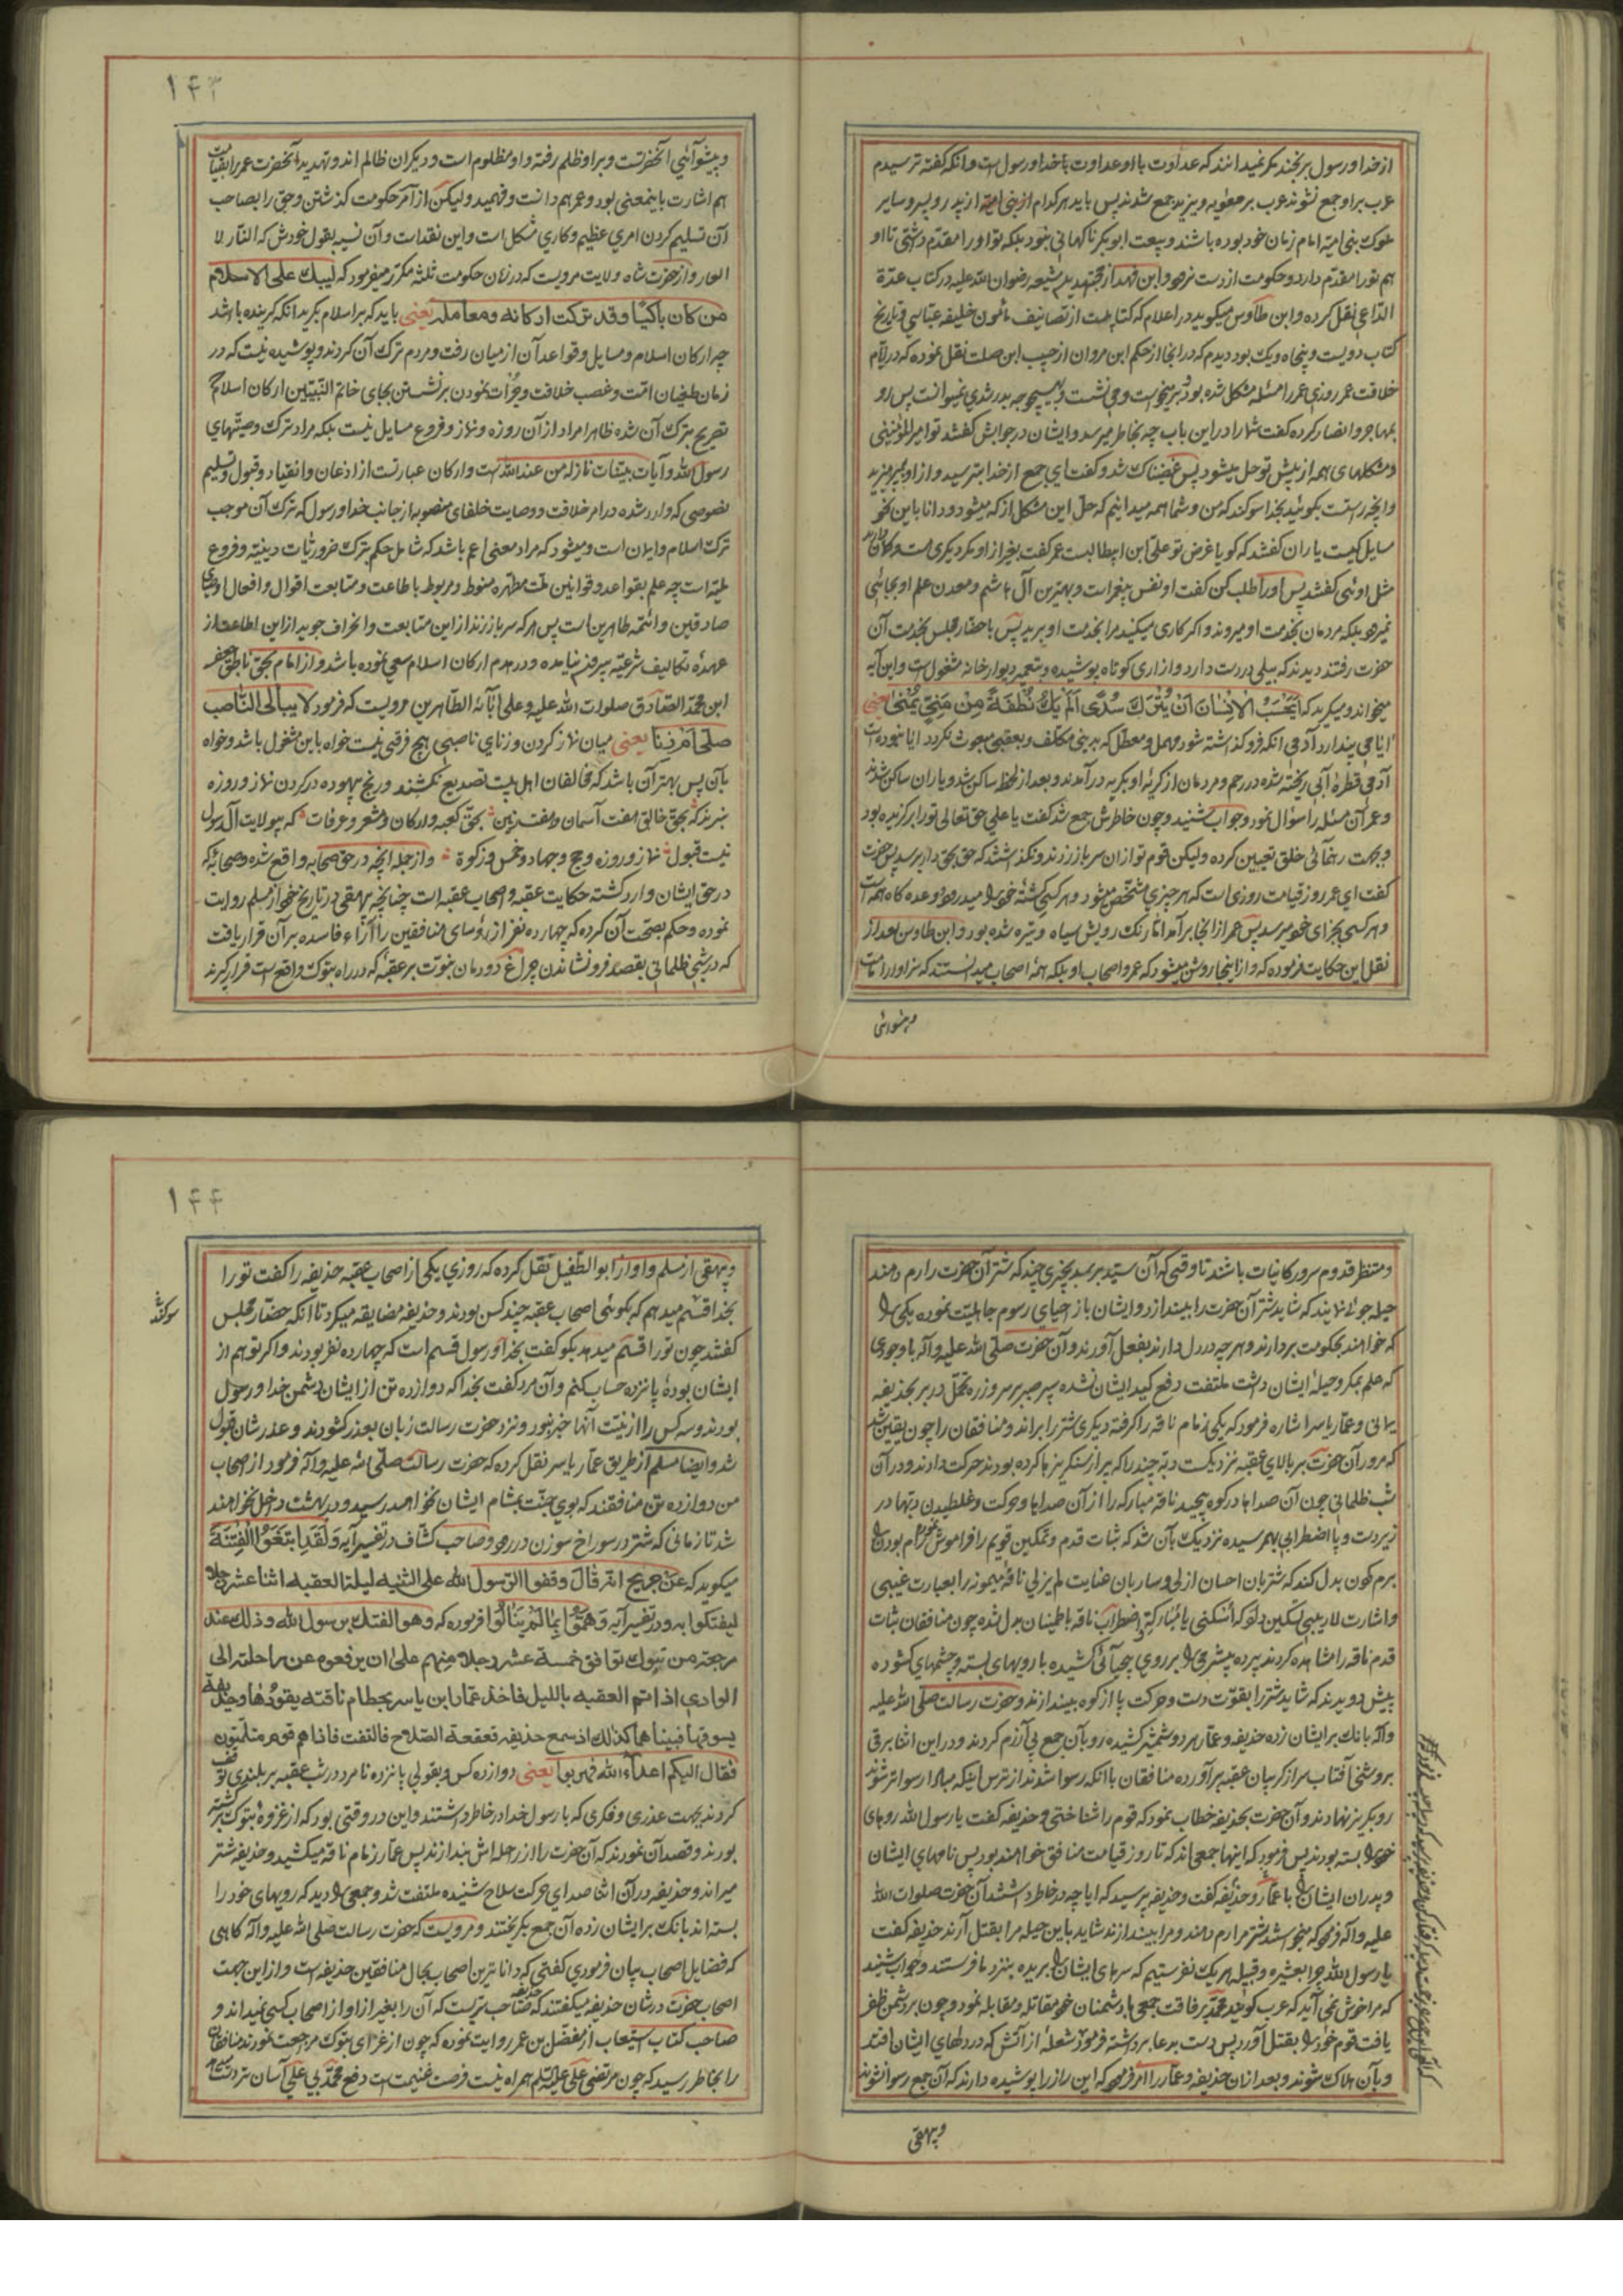 از خدا و رسول برنجند مکر نمیدانند که عداوت با او عداوت با خدا و رسول است و انکه کفته ترسیدم
عرب بر او جمع نشوند عرب بر معویه و یزید جمع شدند پس باید هر کدام از بنی امیه از پدر و پسر و سایر
ملوک بنی امیه امام زمان خود بوده باشند و بیعت ابوبکر ناکهانی نبود بلکه تو او را مقدم داشتی تا او
هم تو را مقدم دارد و حکومت از دست نرود و ابن فهد از مجتهدین شیعه رضوان الله علیه در کتاب عدة
الداعی نقل کرده و ابن طاوس میکوید در اعلام که کتابیست از تصانیف مأمون خلیفه عباسی و تاریخ
کتاب دویست و پنجاه و یک بود دیدم که در انجا از حکم ابن مروان از جبیب ابن صلت نقل نموده که در ایام
خلافت عمر روزی عمر را مسئله مشکل شده بود برمیخاست و می نشست و بهیچوجه بدر شدی نمیتوانست پس رو
بمهاجر و انصار کرده کفت شما را در این باب چه بخاطر میرسد و ایشان در جوابش کفتند تو امیر المؤمنینی
و مشکلهای همه از پیش تو حل میشود پس غضبناک شد و کفت ای جمع از خدا بترسید و از او بپرهیزید
و انچه راست بکوئید بخدا سوکند که من و شما همه میدانیم که حل این مشکل از که میشود و دانا باین نحو
مسایل کیست یاران کفتند که کویا غرض تو علی ابن ابیطالبست عمر کفت بغیر از او مکر دیکری است
مثل اوئی کفتند پس او را طلب کن کفت او نفس پیغمبر است و بهترین آل هاشم و معدن علم او بجائی
نمیرود بلکه مردمان بخدمت او میروند و اکر کاری میکنید مرا بخدمت او برید پس با حضار مجلس بخدمت آن
حضرت رفتند دیدند که بیلی در دست دارد و ازاری کوتاه پوشیده و بتعمیر دیوار خانه مشغول است و این آیه
میخواند و میکرید که اَیَحْسَبُ الْاِنْسانُ اَنْ یُتْرَکَ سُدًی اَلَمْ یَکُ نُطْفَةً مِنْ مَنِیٍّ یُمْنی یعنی
ایا می پندارد آدمی انکه فرو کذاشته شود مهمل و معطل که بدینی مکلف و بعقبی مبعوث نکردد ایا نبوده است
آدمی قطره آبی ریخته شده در رحم و مردمان از کریه او بکریه در آمدند و بعد از لحظه ساکن شد و یاران ساکن شدند
و عمر آن مسئله را سؤال نمود و جواب شنید و چون خاطرش جمع شد کفت یا علی حق تعالی تو را برکزیده بود
و بجهت رهنمائی خلق تعیین کرده ولیکن قوم تو ازان سر باز زدند و نکذاشتند که حق بحق دار برسد پس حضرت
کفت ای عمر روز قیامت روزی است که هر چیزی مشخص میشود و هر کسی کشته خود را میدرود و وعده کاه همه است
و هر کسی بجزای خود میرسد پس عمر از انجا برآمد اما رنک رویش سیاه و تیره شده بود و ابن طاوس بعد از
نقل این حکایت فرموده که و از اینجا روشن میشود که عمر و اصحاب او بلکه همه اصحاب میدانستند که سزاوار امامت
و پیشوائی
۱۴۳
و پیشوائی آنحضرتست و بر او ظلم رفته و او مظلوم است و دیکران ظالم اند و تهدید آنحضرت عمر را بقیامت
هم اشارت باینمعنی بود و عمر هم دانست و فهمید ولیکن از آمر حکومت کذشتن و حق را بصاحب
آن تسلیم کردن امری عظیم و کاری مشکل است و این نقد است و آن نسیه بقول خودش که النار لا
العار و از حضرت شاه ولایت مرویست که در زمان حکومت ثلثه مکرر میفرمود که لیبک علی الاسلام
من کان باکیا وقد ترکت ارکانه ومعامله یعنی باید که بر اسلام بکرید انکه کرینده باشد
چه ارکان اسلام و مسایل و قواعد آن از میان رفت و مردم ترک آن کردند و پوشیده نیست که در
زمان طغیان امت و غصب خلافت و جرأت نمودن بر نشستن بجای خاتم النبیین ارکان اسلام که
تصریح بترک آن شده ظاهرا مراد از آن روزه و نماز و فروع مسایل نیست بلکه مراد ترک وصیتهای
رسول الله و آیات بینات نازله من عند الله است و ارکان عبارتست از اذعان و انقیاد و قبول و تسلیم
نصوصی که وارد شده در امر خلافت و وصایت خلفای منصوبه از جانب خدا و رسول که ترک آن موجب
ترک اسلام و ایمان است و میشود که مراد معنی اعم باشد که شامل حکم بترک ضروریات دینیه و فروع
ملیه است چه علم بقواعد و قوانین ملت مطهره منوط و مربوط باطاعت و متابعت اقوال و افعال
صادقین و ائمه طاهرین است پس هر که سر باز زند از این متابعت و انحراف جوید از این اطاعت از
عهده تکالیف شرعیه بیرون نیامده و در هدم ارکان اسلام سعی نموده باشد و از امام بحق ناطق جعفر
ابن محمد الصادق صلوات الله علیه وعلی آبائه الطاهرین مرویست که فرمود لا یبالی الناصب
صلی ام زنا یعنی میان نماز کردن و زنای ناصبی هیچ فرقی نیست خواه باین مشغول باشد و خواه
بآن پس بهتر آن باشد که مخالفان اهل بیت تصدیع نکشند و رنج بیهوده در کردن نماز و روزه
نبرند بحق خالق هفت آسمان و هفت زمین بحق کعبه و ارکان و مشعر و عرفات که بیولایت آل رسول
نیست قبول نماز و روزه و حج و جهاد و خمس و زکوة و از جمله انچه در حق صحابه واقع شده و صحابه که
در حق ایشان وارد کشته حکایت عقبه و اصحاب عقبه است چنانچه بیهقی در تاریخ خود از مسلم روایت
نموده و حکم بصحت آن کرده که چهارده نفر از رؤسای منافقین را آراء فاسده بر آن قرار یافت
که در شبی ظلمانی بقصد فرو نشاندن چراغ دودمان نبوت بر عقبه که در راه تبوک واقع است قرار کیرند
و منتظر قدوم سرور کاینات باشند تا وقتی که آن سید بر سد بچیزی چند که شتر آن حضرت را رم دهند
حیله جوئی نمایند که شاید شتر آن حضرت را بیندازد و ایشان باز احیای رسوم جاهلیت نموده یکی را
که خواهند بحکومت بردارند و هر چه در دل دارند بفعل آورند و آن حضرت صلی الله علیه وآله با وجودی
که علم بمکر و حیله ایشان داشت ملتفت دفع کید ایشان نشده سپر صبر بر سر و زره تحمل در بر بحذیفه
یمانی و عمار یاسر اشاره فرمود که یکی زمام ناقه را کرفته دیکری شتر را براند و منافقان را چون یقین شد
که مرور آن حضرت بر بالای عقبه نزدیکست دبه چند را که پر از سنکریزها کرده بودند حرکت دادند و در آن
شب ظلمانی چون آن صداها در کوه پیچید ناقه مبارکه را از آن صداها و حرکت و غلطیدن دبها در
زیر دست و پا اضطرابی بهم رسیده نزدیک بآن شد که ثبات قدم و تمکین قویم را فراموش نموده آرام بودن را
برم کون بدل کند که شتربان احسان ازلی و ساربان عنایت لم یزلی ناقه میمونه را بعبارت غیبی
و اشارت لاریبی تسکین داد که اسکنی یا مبارکة و اضطراب ناقه باطمینان بدل شده چون منافقان ثبات
قدم ناقه را مشاهده کردند پرده بیشرمی را بر روی بیحیائی کشیده با رویهای بسته و چشمهای کشوده
پیش دویدند که شاید شتر را بقوت دست و حرکت پا از کوه بیندازند و حضرت رسالت صلی الله علیه
وآله بانک بر ایشان زده حذیفه و عمار هر دو شمشیر کشیده رو بآن جمع بی آزرم کردند و در این اثنا برقی
بروشنی آفتاب سر از کریبان عقبه برآورده منافقان با انکه رسوا شدند از ترس اینکه مبادا رسواتر شوند
رو بکریز نهادند و آن حضرت بحذیفه خطاب نمود که قوم را شناختی و حذیفه کفت یا رسول الله روهای
خود را بسته بودند پس فرمود که اینها جمعی اند که تا روز قیامت منافق خواهند بود پس نامهای ایشان
و پدران ایشان را با عمار و حذیفه کفت و حذیفه پرسید که ایا چه در خاطر داشتند آن حضرت صلوات الله
علیه وآله فرمود که میخواستند شتر مرا رم دهند و مرا بیندازند شاید باین حیله مرا بقتل آرند حذیفه کفت
یا رسول الله چرا بعشیره و قبیله هر یک نفرستیم که سرهای ایشان را بریده بنزد ما فرستند و جواب شنید
که مرا خوش نمی آید که عرب کویند محمد برفاقت جمعی با دشمنان خود مقاتله و مقابله نمود و چون بر دشمن ظفر
یافت قوم خود را بقتل آورد پس دست بدعا برداشته فرمود شعله از آتش که در دلهای ایشان افتد
و بآن هلاک شوند و بعد ازان حذیفه و عمار را امر فرمود که این راز را پوشیده دارند که آن جمع رسوا نشوند
و بیهقی
۱۴۴
و بیهقی از مسلم و او از ابو الطفیل نقل کرده که روزی یکی از اصحاب عقبه حذیفه را کفت تو را
بخدا قسم میدهم که بکوئی اصحاب عقبه چند کس بودند و حذیفه مضایقه میکرد تا انکه حضار مجلس
سوکند
کفتند چون تو را قسم میدهد بکو کفت بخدا و رسول قسم است که چهارده نفر بودند و اکر تو هم از
ایشان بوده پانزده حساب کنم و آن مرد کفت بخدا که دوازده تن از ایشان دشمن خدا و رسول
بودند و سه کس را از نیت آنها خبر نبود و نزد حضرت رسالت زبان بعذر کشودند و عذرشان قبول
شد و ایضا مسلم از طریق عمار یاسر نقل کرده که حضرت رسالت صلی الله علیه وآله فرمود از اصحاب
من دوازده تن منافقند که بوی جنت بمشام ایشان نخواهد رسید و در بهشت داخل نخواهند
شد تا زمانی که شتر در سوراخ سوزن در رود و صاحب کشاف در تفسیر آیه وَلَقَدِ ابْتَغَوُا الْفِتْنَةَ
میکوید که عن جریح انه قال وقفوا الرسول الله علی الثنیه لیلة العقبه اثنا عشر رجلا
لیفتکوا به و در تفسیر آیه وَهَمُّوا بِمَا لَمْ یَنَالُوا فرموده که وهو الفتک برسول الله وذلک عند
مرجعه من تبوک توافق خمسة عشر رجلا منهم علی ان یدفعوه عن راحلته الی
الوادی اذا تسم العقبه باللیل فاخذ عمار ابن یاسر بخطام ناقته یقودها وحذیفة
یسوقها فبینا هما کذلک اذ سمع حذیفه قعقعة السلاح فالتفت فاذا هم قوم متلثمون
فقال الیکم اعداء الله فهربوا یعنی دوازده کس و بقولی پانزده نامرد در شب عقبه بر بلندی توقف
کردند بجهت عذری و فکری که با رسول خدا در خاطر داشتند و این در وقتی بود که از غزوه تبوک برکشته
بودند و قصد آن نمودند که آن حضرت را از راحله اش بیندازند پس عمار زمام ناقه میکشید و حذیفه شتر
میراند و حذیفه در آن اثنا صدای حرکت سلاح شنیده ملتفت شد و جمعی را دید که رویهای خود را
بسته اند بانک بر ایشان زده آن جمع بکریختند و مرویست که حضرت رسالت صلی الله علیه وآله کاهی
که فضایل اصحاب بیان فرمودی کفتی که داناترین اصحاب بحال منافقین حذیفه است و از این جهت
اصحاب حضرت در شان حذیفه میکفتند که حذیفه صاحب سریست که آن را بغیر از او از اصحاب کسی نمیداند و
صاحب کتاب استیعاب از مفضل بن عمر روایت نموده که چون از غزای تبوک مراجعت نمودند منافقان
را بخاطر رسید که چون مرتضی علی علیه السلام همراه نیست فرصت غنیمت است دفع محمد بی علی آسان تر دست